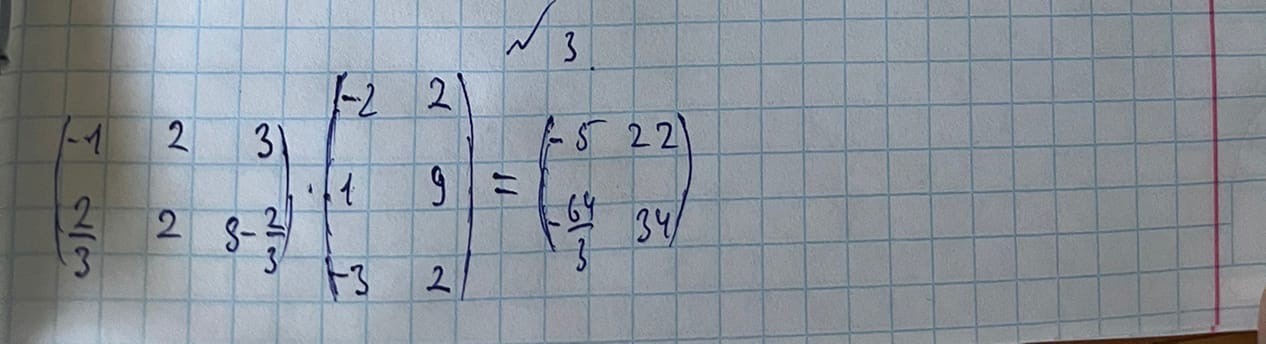 N 3.
(-1 2 3; 2/3 2 8-2/3) · (-2 2; 1 9; -3 2) = (-5 22; -64/3 34)